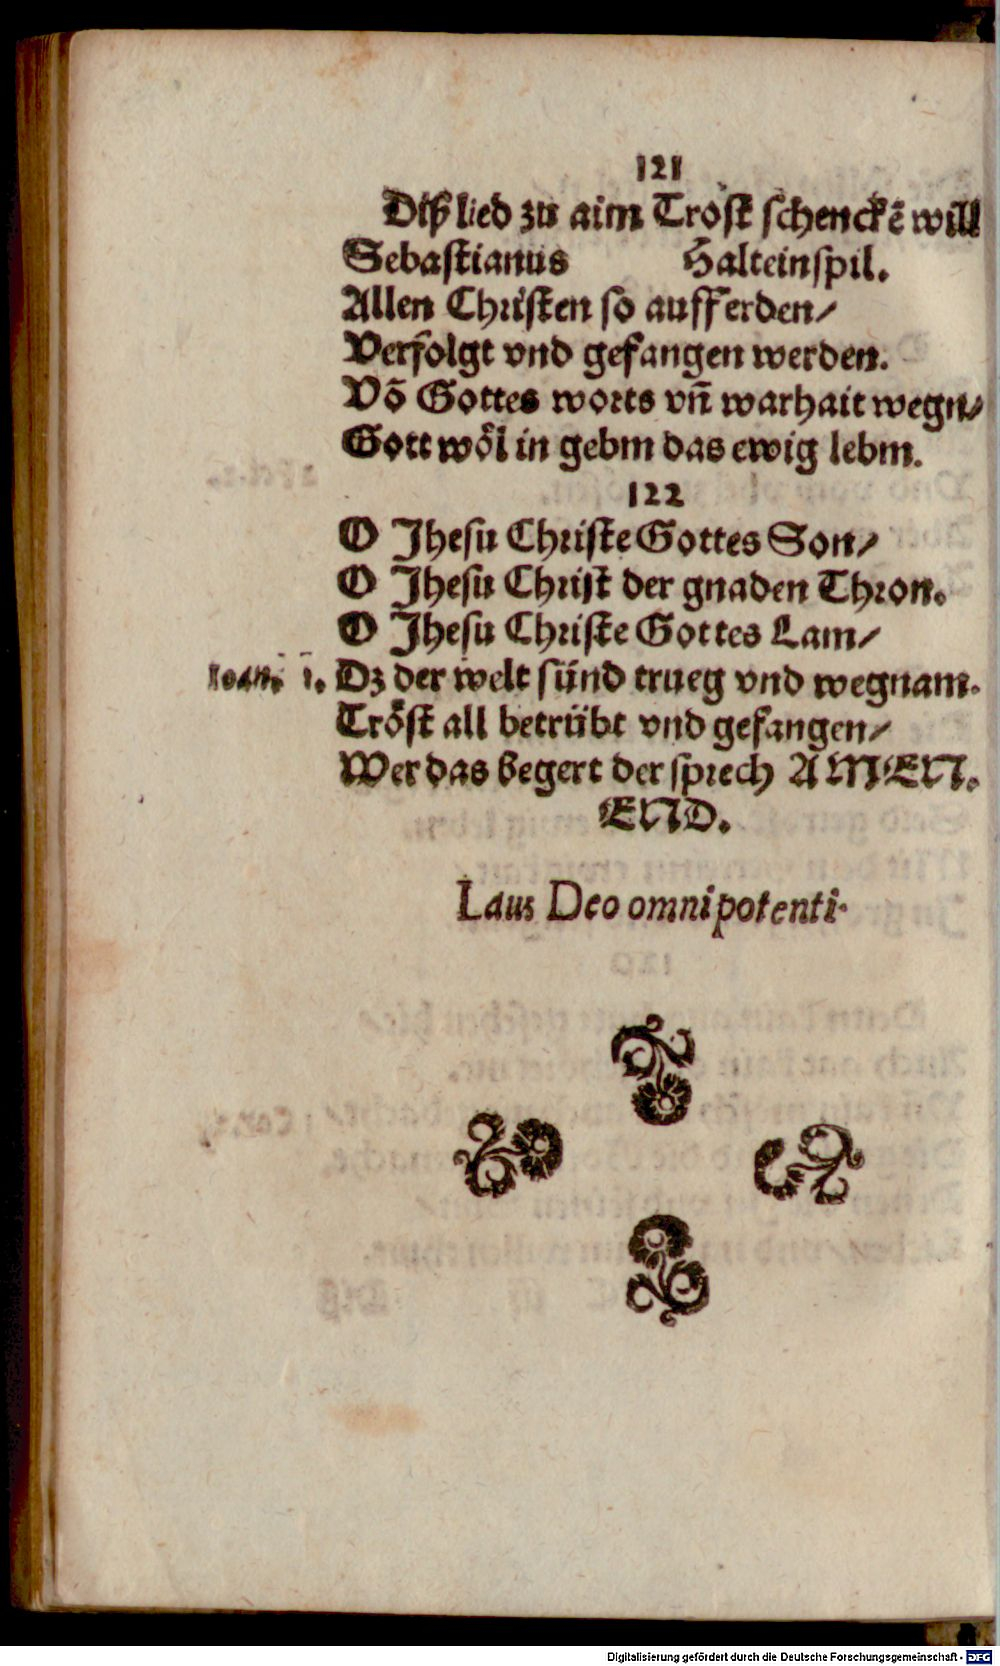 121
Diß lied zu aim Trost schenckẽ will
Sebastianus Halteinspil.
Allen Christen so auff erden/
Verfolgt vnd gefangen werden.
Võ Gottes worts vñ warhait wegn/
Gott wöl in gebm das ewig lebm.
122
O Jhesu Christe Gottes Son/
O Jhesu Christ der gnaden Thron.
O Jhesu Christe Gottes Lam/
Ioan. 1. Dz der welt sünd trueg vnd wegnam.
Tröst all betrübt vnd gefangen/
Wer das begert der sprech AMEN.
END.
Laus Deo omnipotenti.
Digitalisierung gefördert durch die Deutsche Forschungsgemeinschaft - DFG